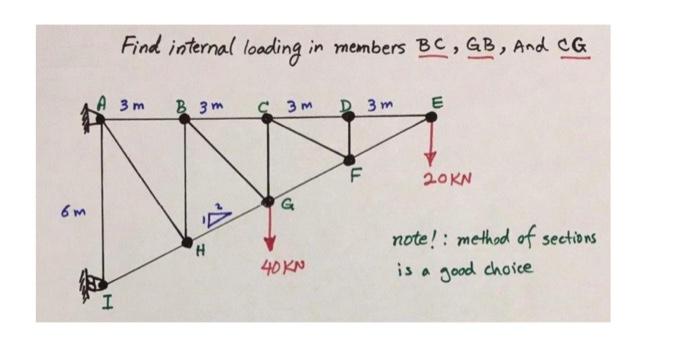 Find internal loading in members BC, GB, And CG
A 3m B 3m C 3m D 3m E
F
20KN
6m
1 2
G
H
40KN
note!: method of sections
is a good choice
I